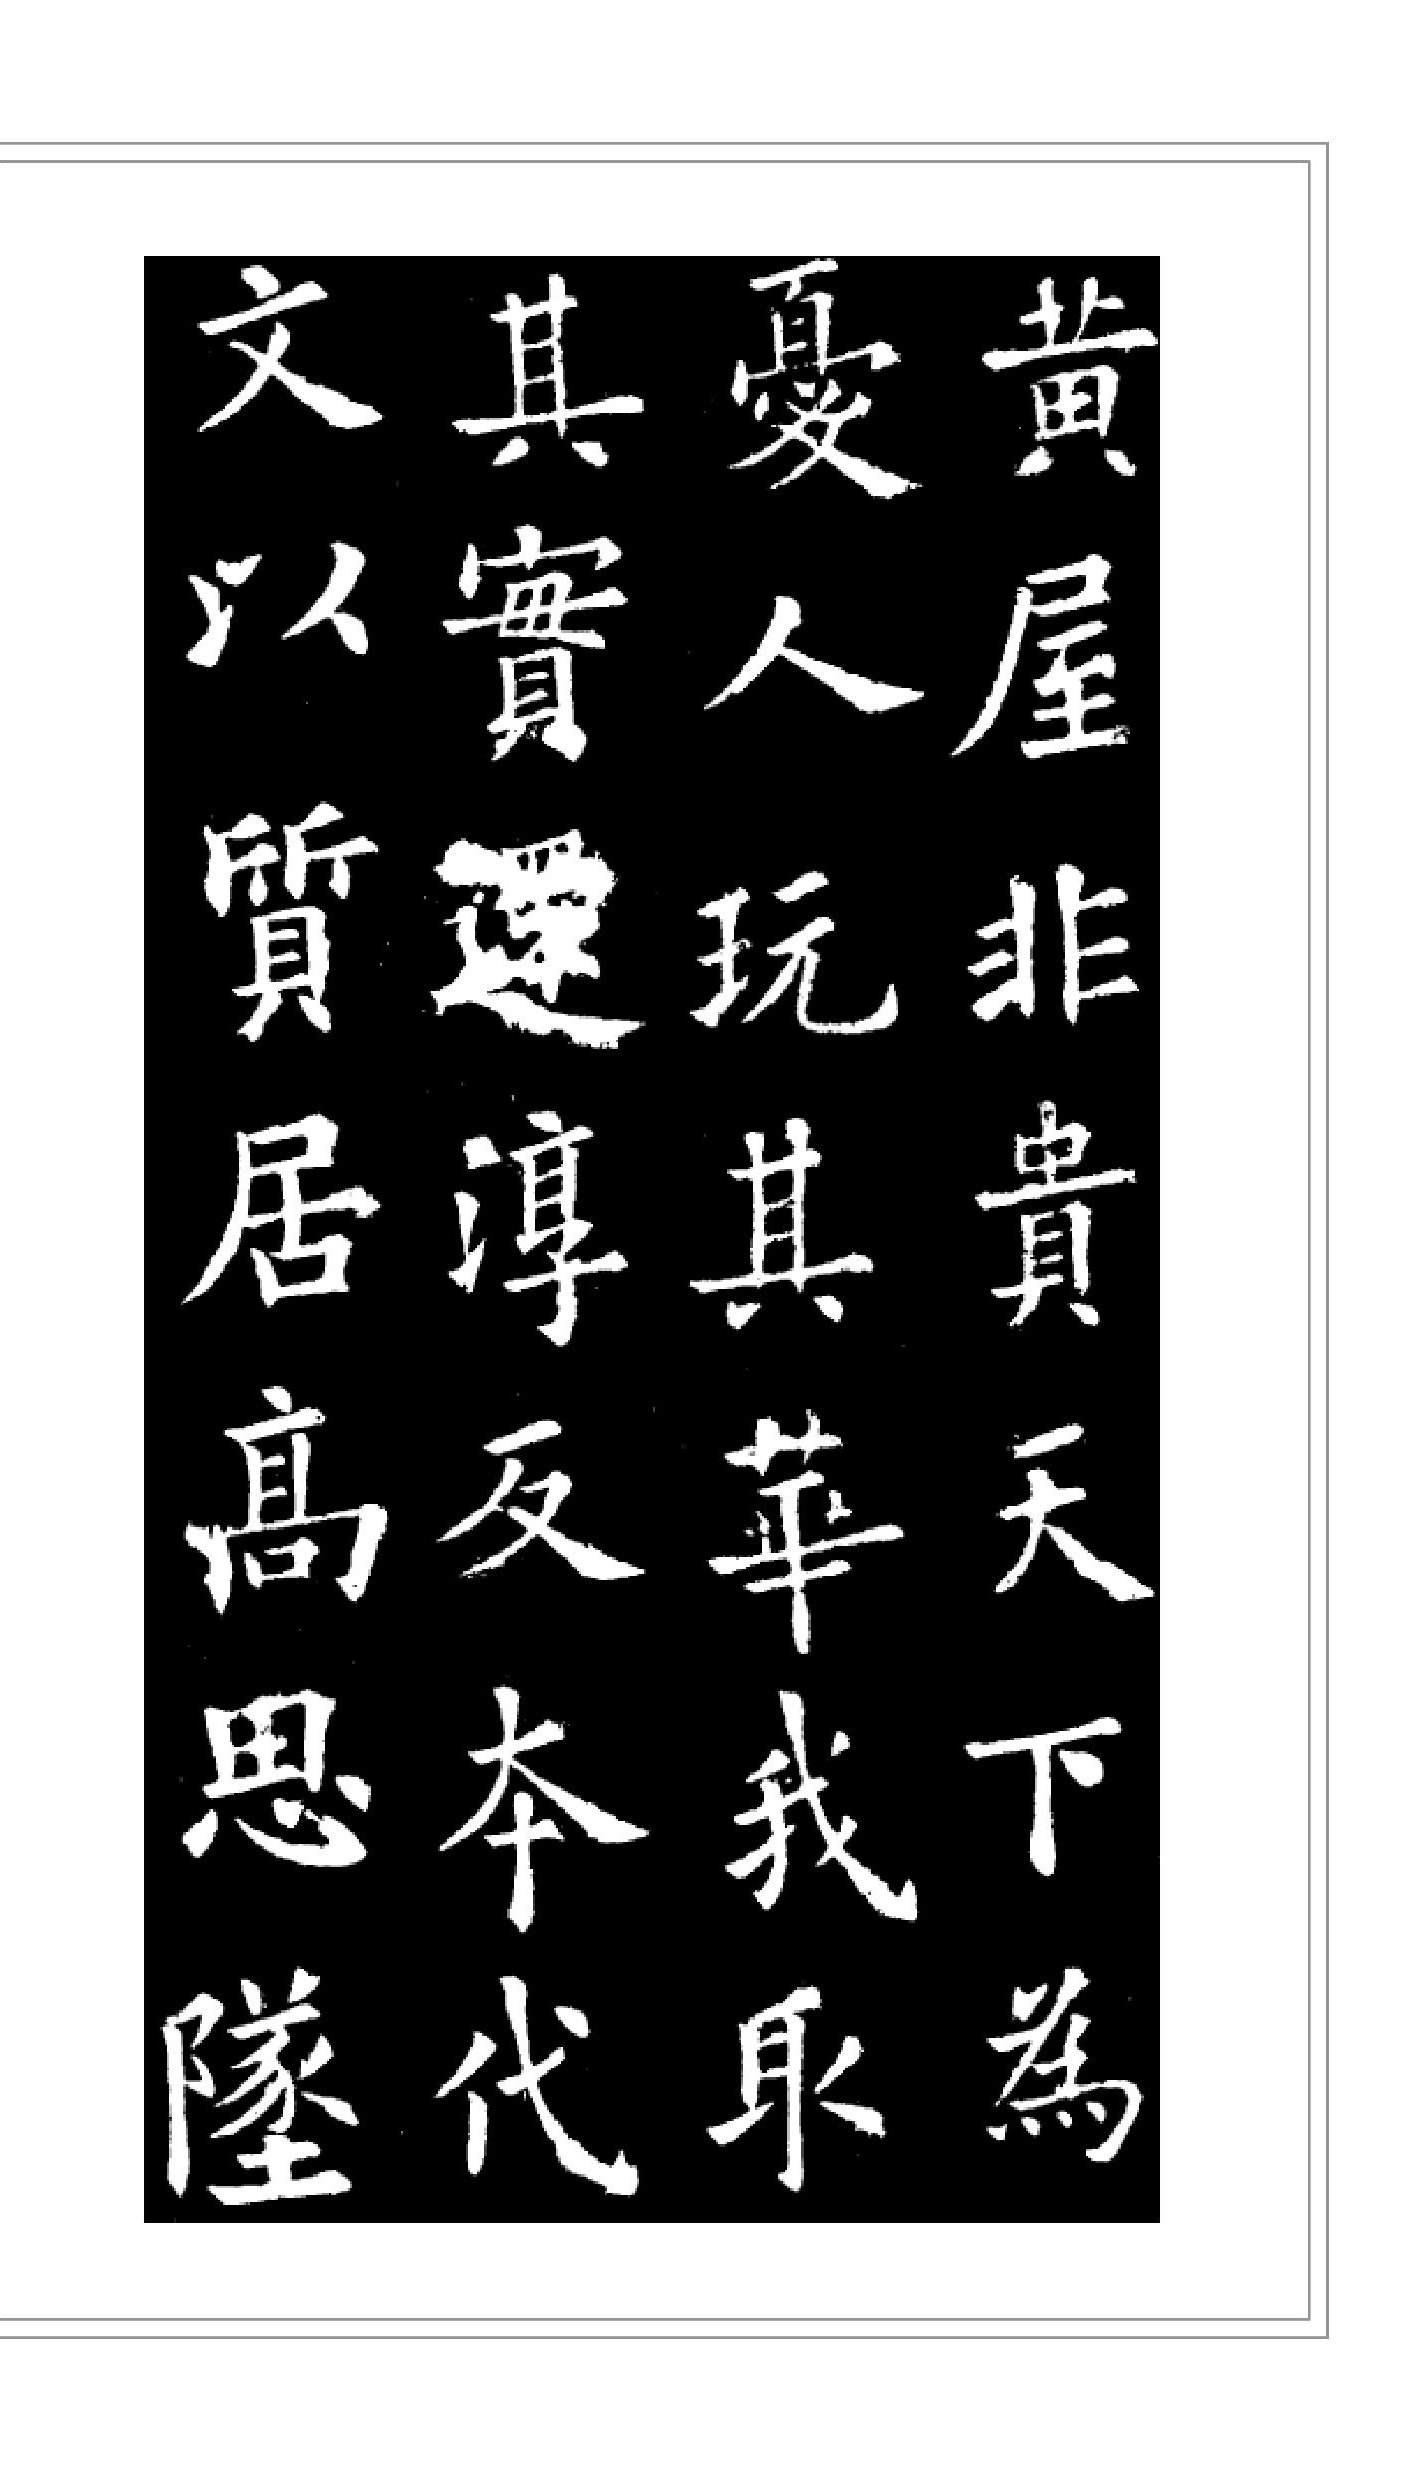 黄屋非貴天下為
憂人玩其華我取
其實還淳反本代
文以質居高思墜